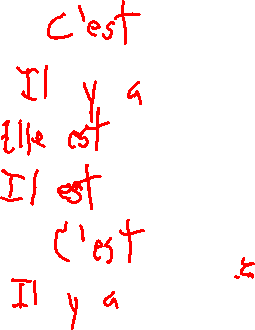 C'est
Il y a
Elle est
Il est
C'est
Il y a